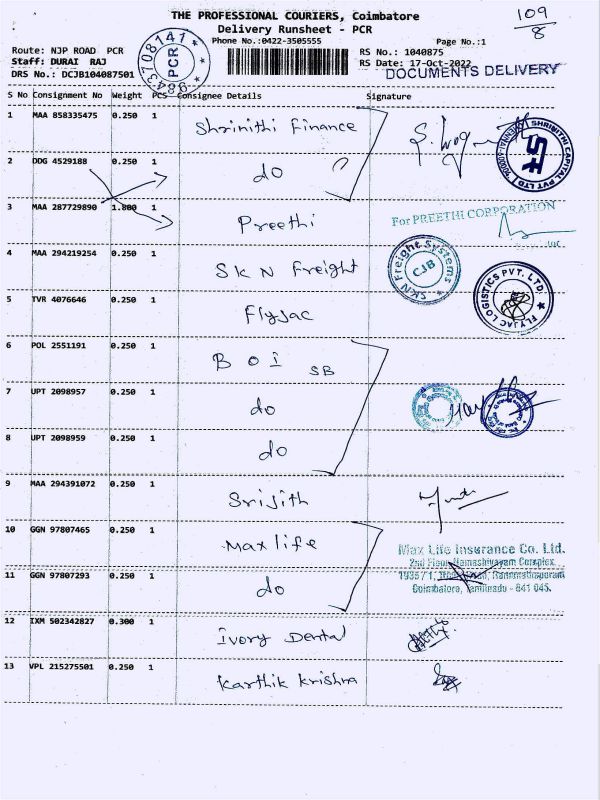 THE PROFESSIONAL COURIERS, Coimbatore
Delivery Runsheet - PCR
Phone No.:0422-3505555
109/8
Page No.:1
Route: NJP ROAD PCR
Staff: DURAI RAJ
DRS No.: DCJB104087501
RS No.: 1040875
RS Date: 17-Oct-2022
DOCUMENTS DELIVERY
9843708141 PCR
S No Consignment No Weight PCS Consignee Details Signature
1 MAA 858335475 0.250 1 Shrinithi Finance
SHRINITHI CAPITAL PVT LTD
2 DDG 4529188 0.250 1 do
3 MAA 287729890 1.800 1 Preethi
For PREETHI CORPORATION
4 MAA 294219254 0.250 1 SKN Freight
SKN Freight Systems CJB
5 TVR 4076646 0.250 1 Flyjac
FLYJAC LOGISTICS PVT. LTD.
6 POL 2551191 0.250 1 BOI SB
7 UPT 2098957 0.250 1 do
8 UPT 2098959 0.250 1 do
9 MAA 294391072 0.250 1 Srijith
10 GGN 97807465 0.250 1 Maxlife
Max Life Insurance Co. Ltd.
2nd Floor, Namashivayam Complex
11 GGN 97807293 0.250 1 do
1935 / 1, Road, Ramanathapuram
Coimbatore, Tamilnadu - 641 045.
12 IXM 502342827 0.300 1 Ivory Dental
13 VPL 215275501 0.250 1 Karthik Krishna